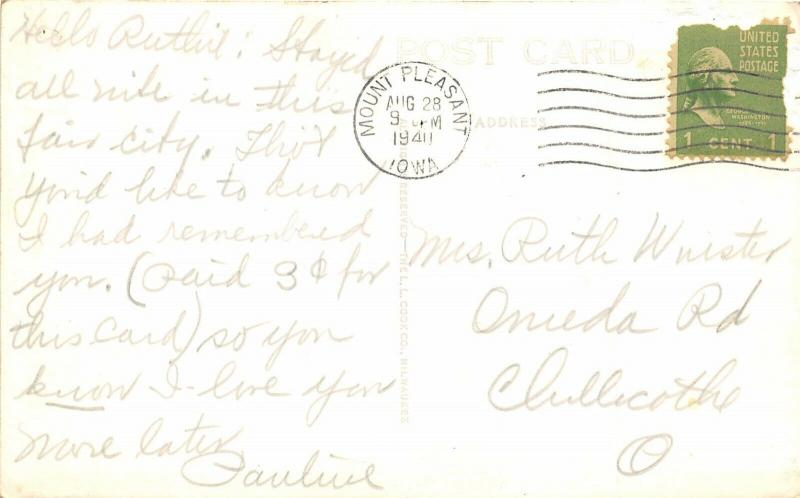 Hello Ruthie: Stayed
all nite in this
fair city. Thot
you'd like to know
I had remembered
you. (Paid 3¢ for
this card) so you
know I love you
more later
Pauline
POST CARD
ADDRESS
MOUNT PLEASANT
AUG 28
9 M
1940
IOWA
UNITED
STATES
POSTAGE
GEORGE
WASHINGTON
1 CENT 1
RESERVED—THE L. L. COOK CO., MILWAUKEE
Mrs. Ruth
Oneida Rd
Chillicothe
O